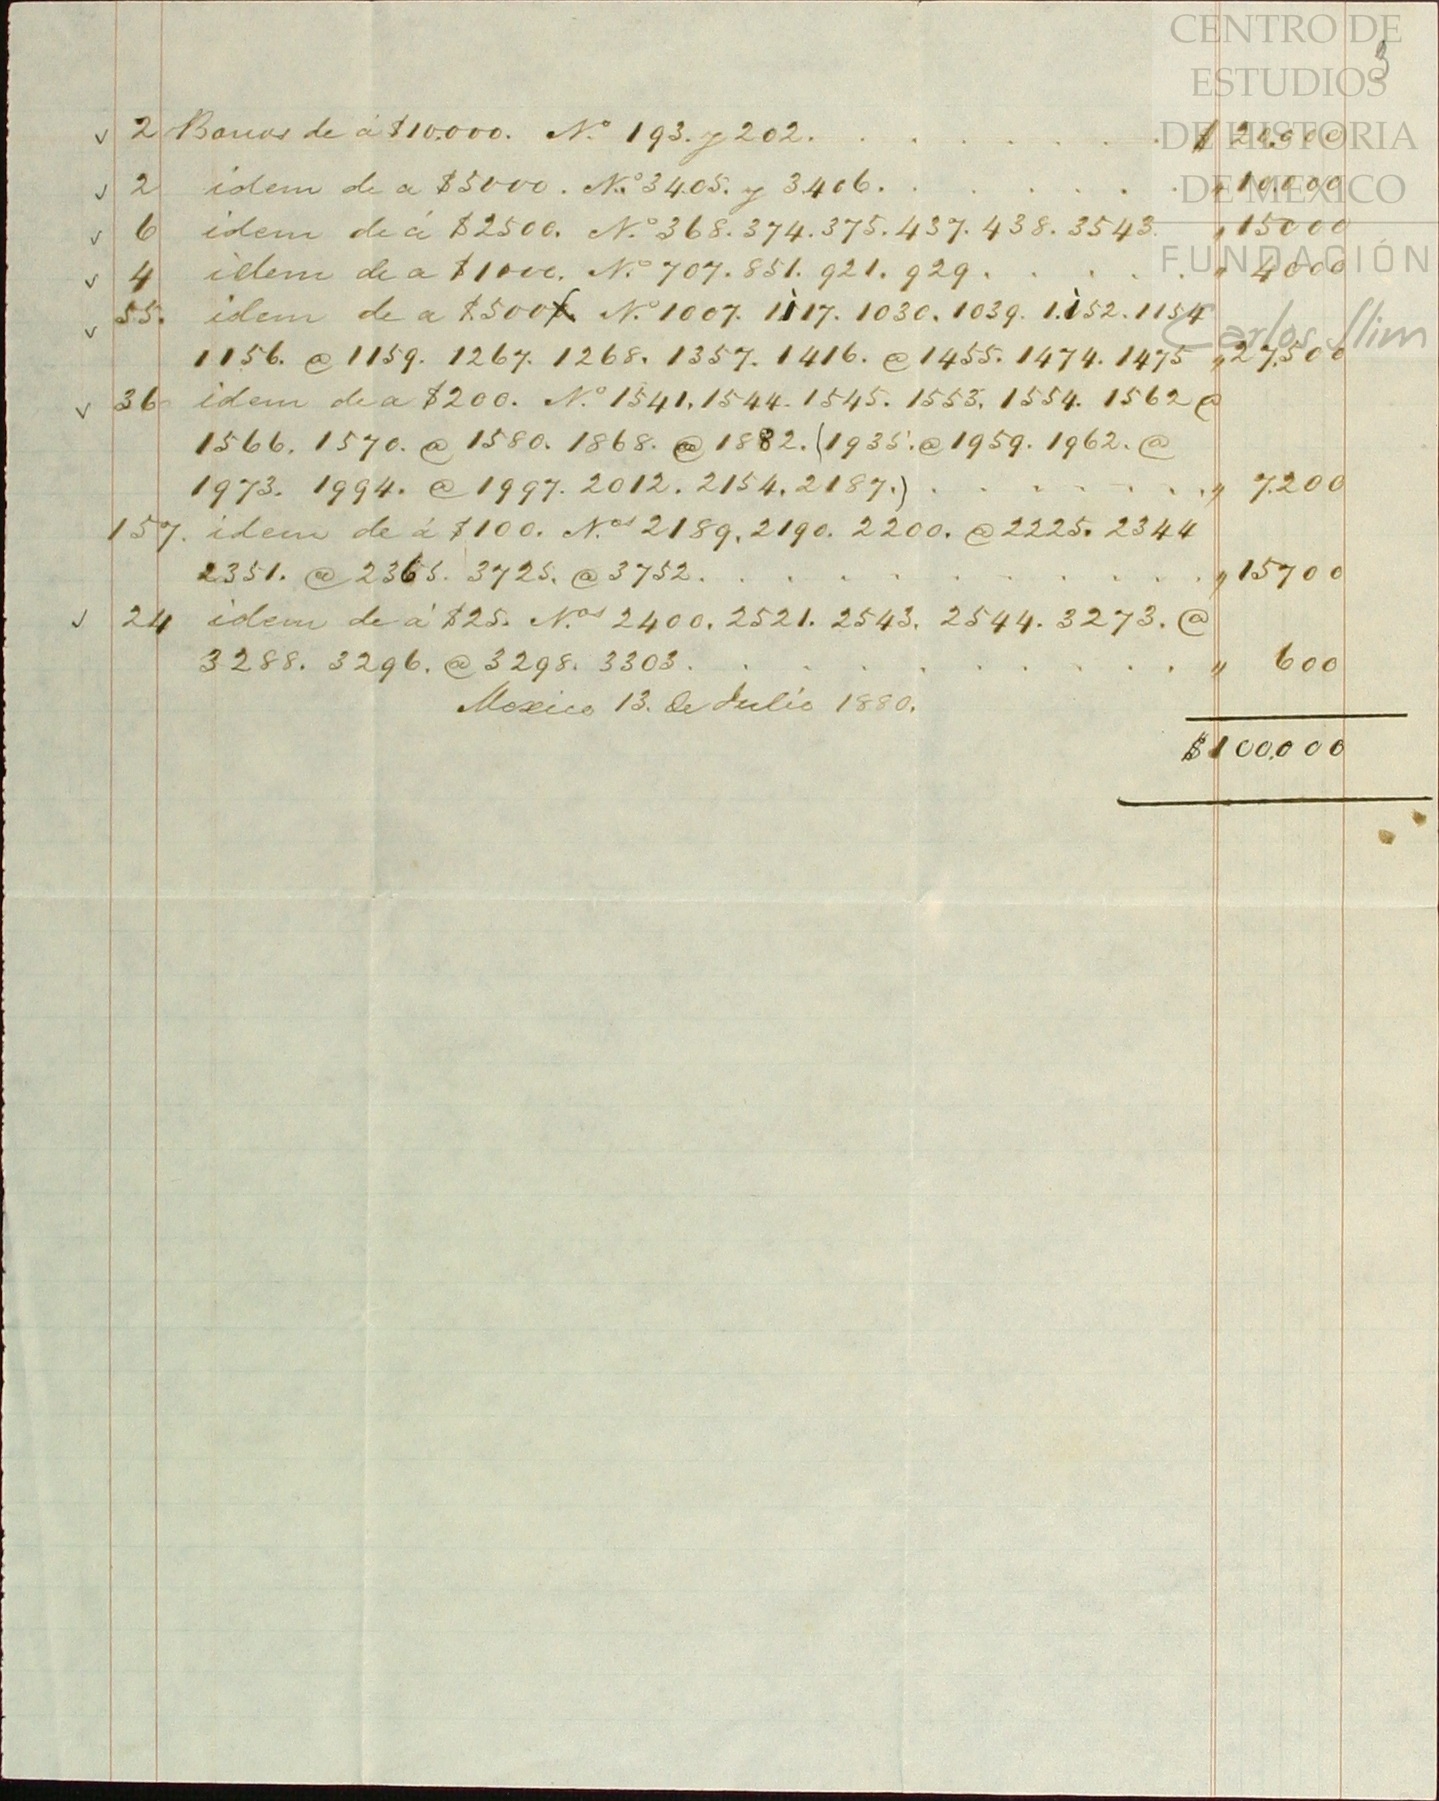 CENTRO DE
ESTUDIOS
DE HISTORIA
DE MEXICO
FUNDACIÓN
Carlos Slim
3
2 Bonos de á $10,000. N.º 193. y 202. . . . . . . . $ 20.000
2 idem de a $5000. N.º 3405. y 3406. . . . . . . " 10.000
6 idem de á $2500. N.º 368. 374. 375. 437. 438. 3543. " 15000
4 idem de a $1000. N.º 707. 851. 921. 929. . . . . . " 4000
55. idem de a $500. N.º 1007. 1117. 1030. 1039. 1152. 1154
1156. @ 1159. 1267. 1268. 1357. 1416. @ 1455. 1474. 1475 " 27,500
36 idem de a $200. N.º 1541. 1544. 1545. 1553. 1554. 1562 @
1566. 1570. @ 1580. 1868. @ 1882. (1935. @ 1959. 1962. @
1973. 1994. @ 1997. 2012. 2154. 2187.) . . . . . . . " 7.200
157. idem de á $100. N.os 2189. 2190. 2200. @ 2225. 2344
2351. @ 2365. 3725. @ 3752. . . . . . . . . . . " 15700
24 idem de á $25. N.os 2400. 2521. 2543. 2544. 3273. @
3288. 3296. @ 3298. 3303. . . . . . . . . . . " 600
Mexico 13. de Julio 1880.
$100,000